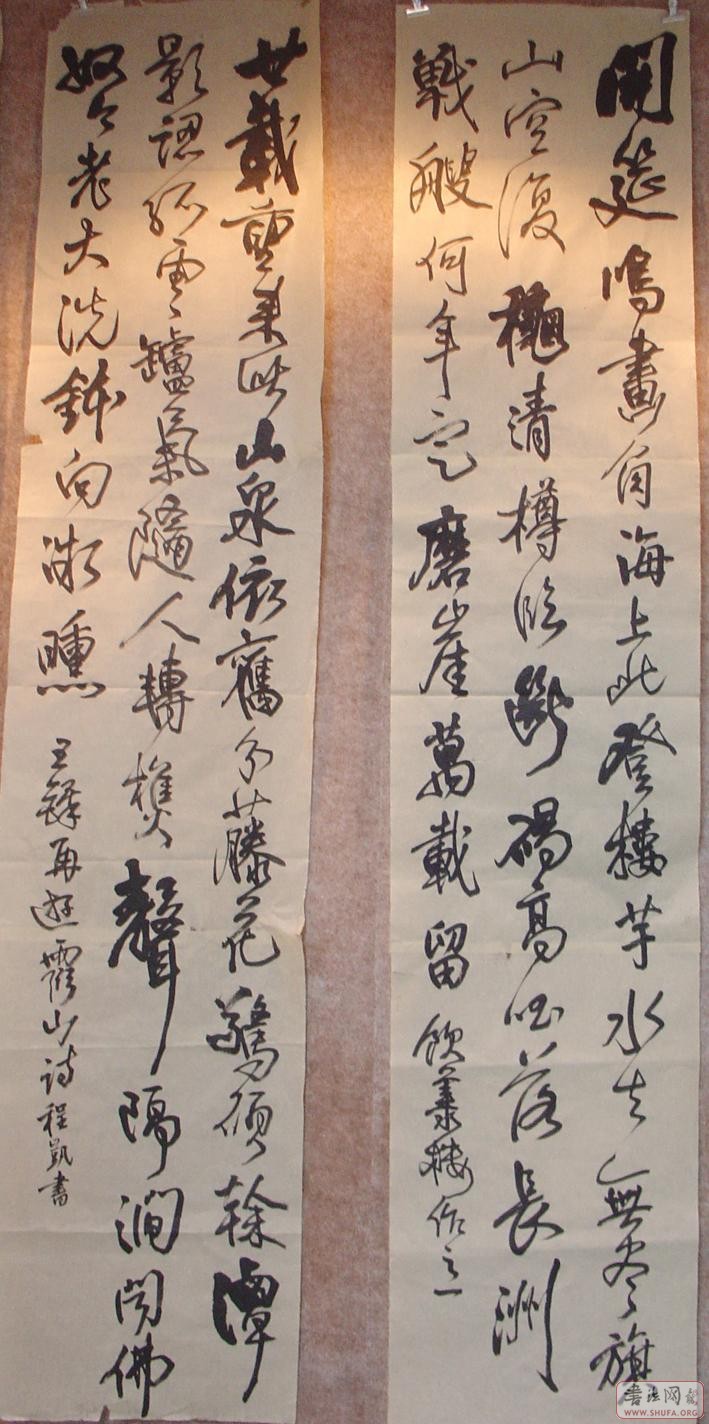 開筵鳴畫角海上此登樓芋水去無盡旗
山空復穐清樽臨斷碣高唱落長洲
戰艘何年定磨崖萬載留 飲
樓作之一
廿載重來此山泉依舊分藤花驚碩幹潭
影認孤雲爐氣隨人轉樵聲隔澗聞佛
奴今老大洗鉢向微曛
王鐸再遊霞山诗程凱書
書法网
WWW.SHUFA.ORG